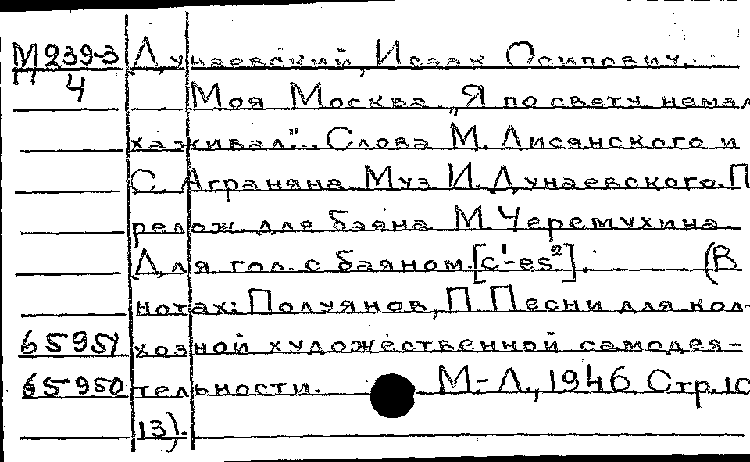 М239-3 Дунаевский, Исаак Осипович.
П
4 Моя Москва. „Я по свету немал
хаживал". Слова М. Лисянского и
С. Аграняна. Муз И. Дунаевского. П
релож для баяна М. Черемухина
Для гол. с баяном. [c¹-es²]. (В
нотах: Полуянов, П Песни для кол-
65951 хозной художественной самодея-
65950 тельности. М-Л., 1946 Стр. 10
13).